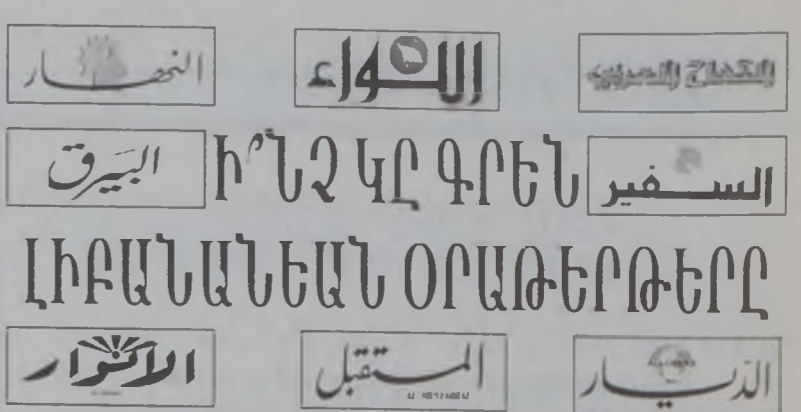 النهار
اللواء
الكفاح العربي
البيرق
Ի՞ՆՉ ԿԸ ԳՐԵՆ
السفير
ԼԻԲԱՆԱՆԵԱՆ ՕՐԱԹԵՐԹԵՐԸ
الأنوار
المستقبل
الديار